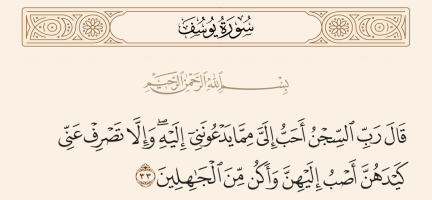 سُورَةُ يُوسُفَ
بِسْمِ اللَّهِ الرَّحْمَٰنِ الرَّحِيمِ
قَالَ رَبِّ ٱلسِّجْنُ أَحَبُّ إِلَىَّ مِمَّا يَدْعُونَنِىٓ إِلَيْهِ ۖ وَإِلَّا تَصْرِفْ عَنِّى
كَيْدَهُنَّ أَصْبُ إِلَيْهِنَّ وَأَكُن مِّنَ ٱلْجَـٰهِلِينَ ٣٣